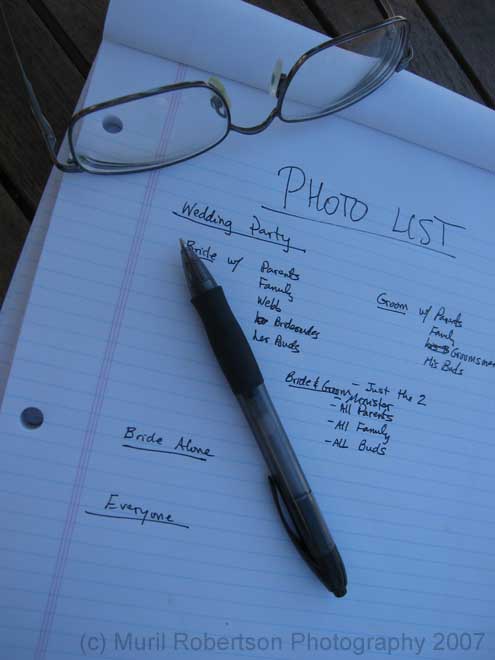 PHOTO LIST
Wedding Party
Bride w/ Parents
Family
Webb
Bridesmaides
her Buds
Groom w/ Parents
Family
Groomsmen
His Buds
Bride & Groom - Just the 2
- Minister
- All Parents
- All Family
- ALL Buds
Bride Alone
Everyone
(c) Muril Robertson Photography 2007